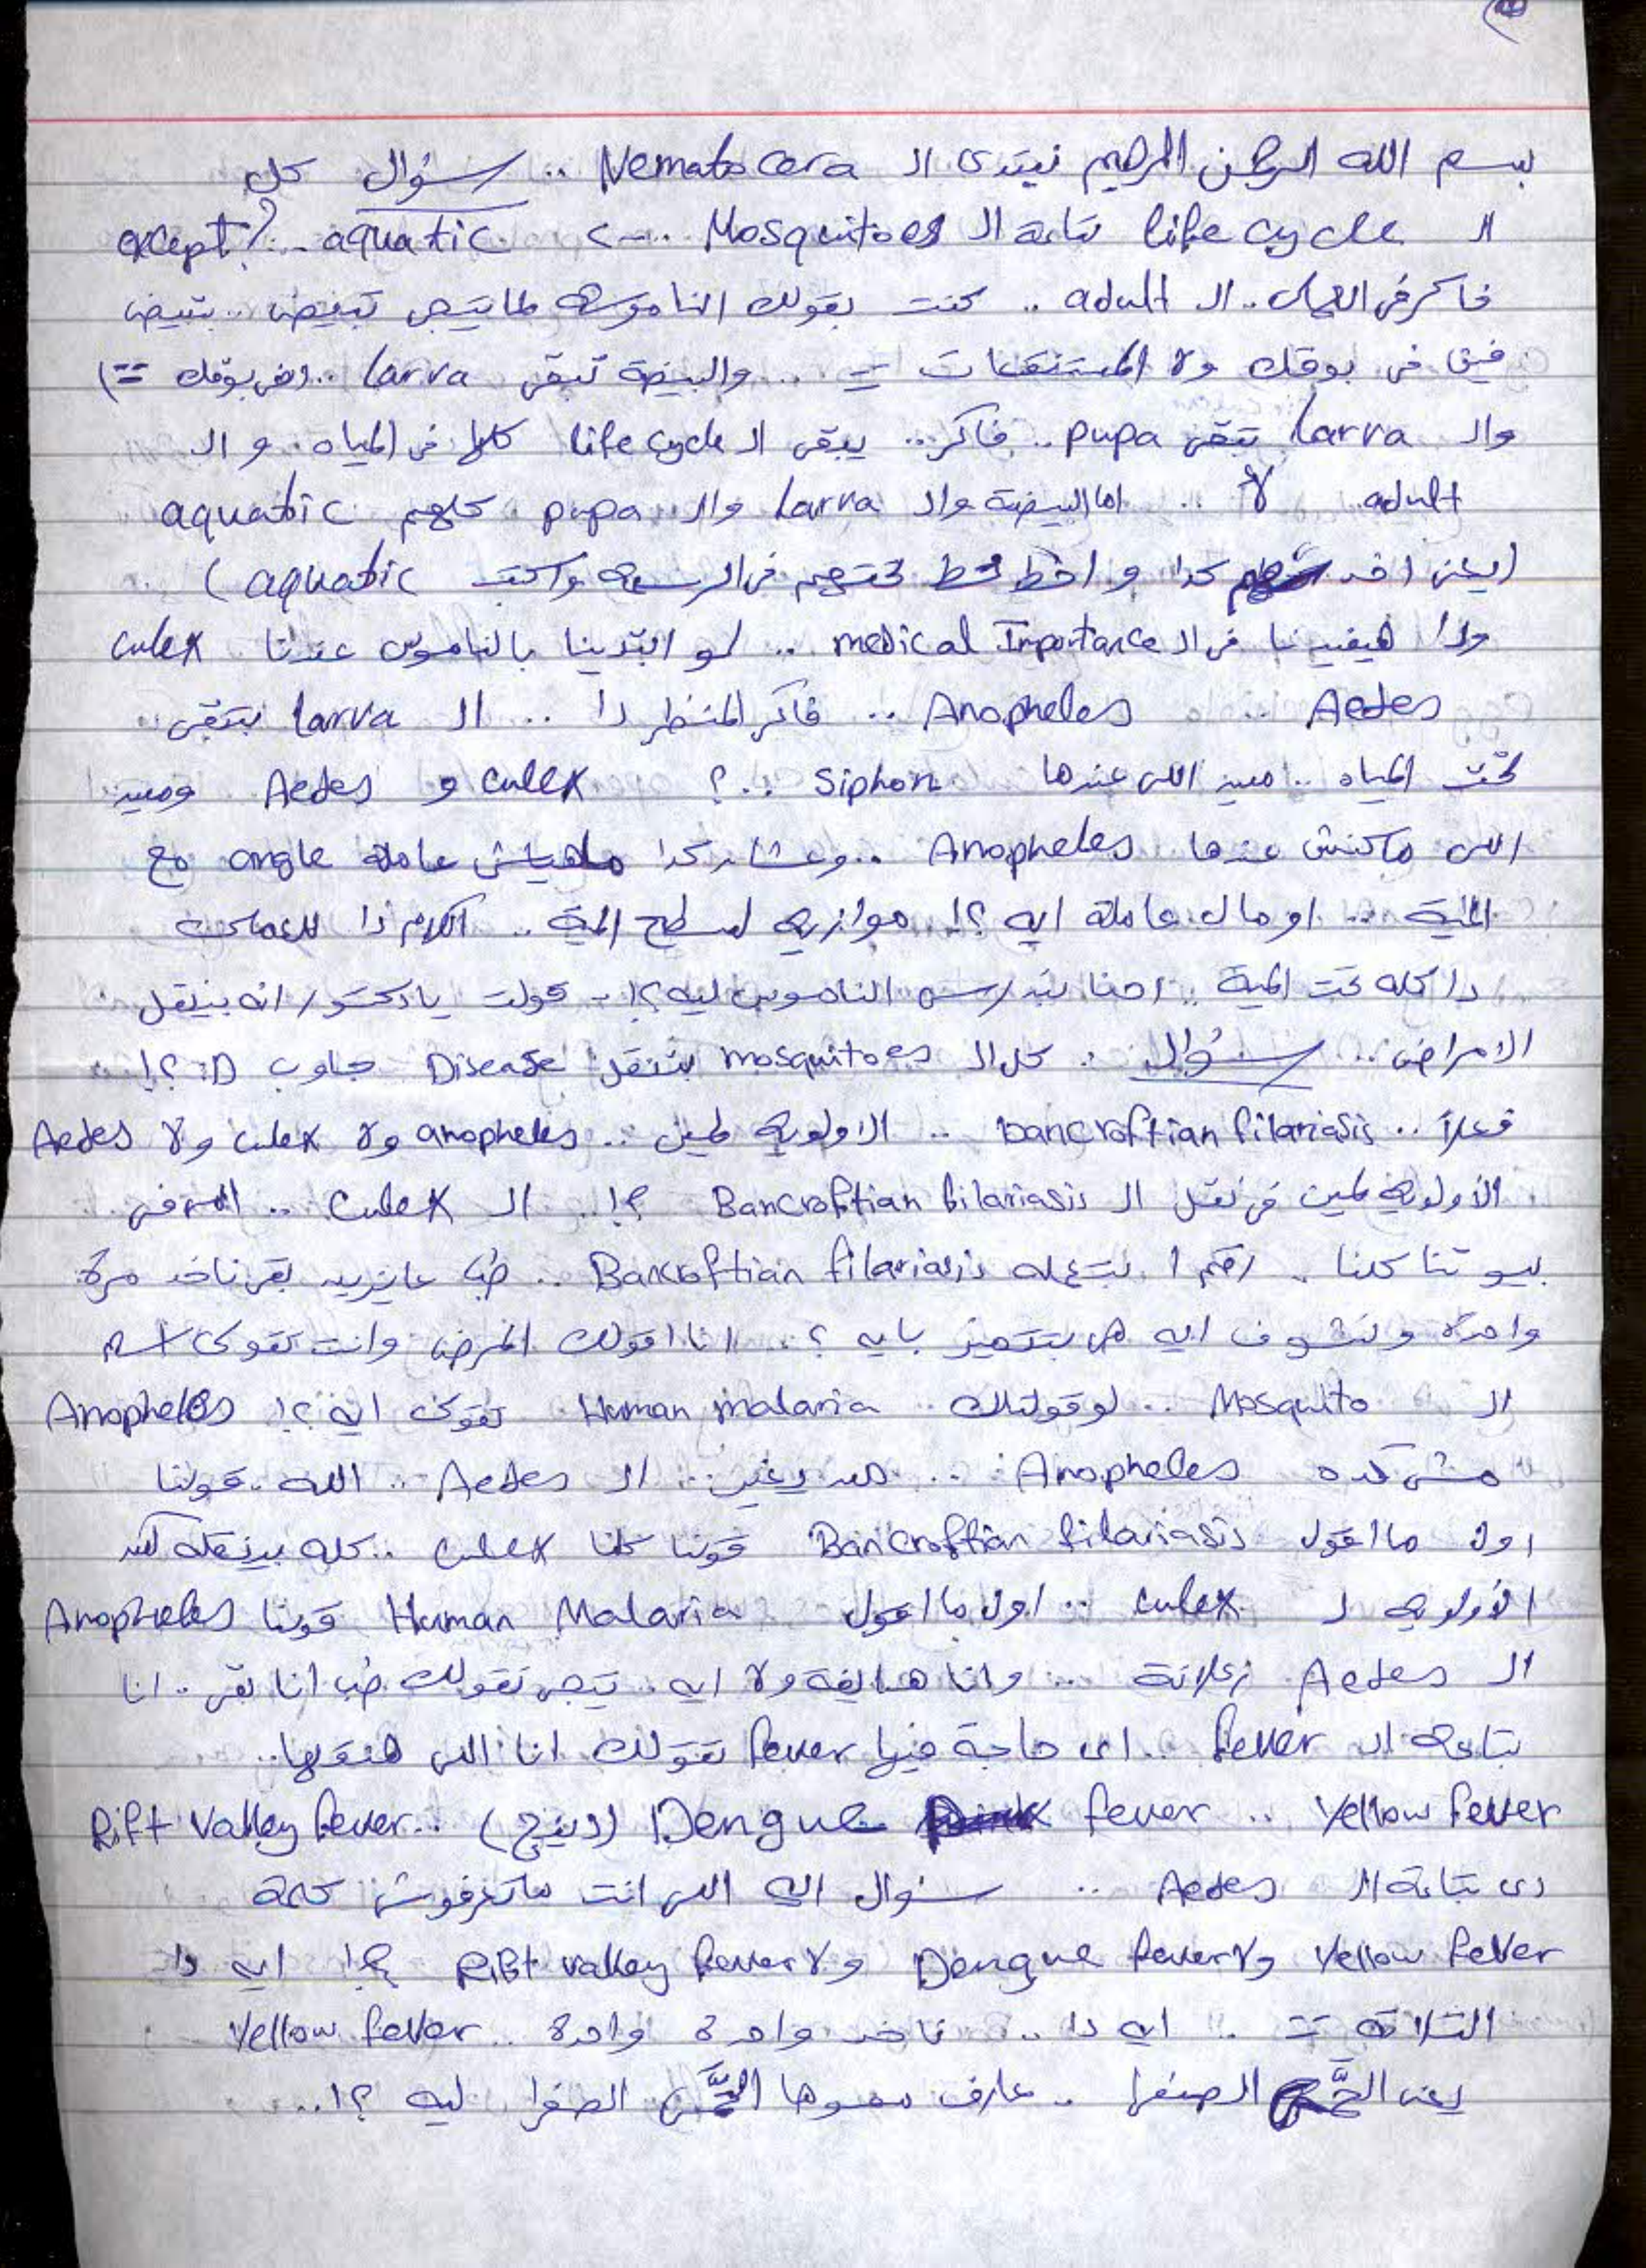 بسم الله الرحمن الرحيم نبتدى ال Nematocera .. سؤال كل
ال life cycle بتاعة ال Mosquitoes ...> aquatic .. except?
فاكر فى العملى .. ال adult .. كنت بقولك الناموسة لما تيجى تبيض .. بتبيض
فين فى بوقك ولا المستنقعات = .. والبيضة تبقى larva .. (فى بوقك =
وال larva تبقى pupa .. فاكر .. يبقى ال life cycle كلها فى المياه . و ال
adult لأ .. اما البيضة وال larva وال pupa كلهم aquatic
(يعنى اخد كدا و احط خط تحتهم فى الرسمة واكتب aquatic)
ودا هيفيدنا فى ال medical Importance .. لو ابتدينا بالناموس عندنا culex
Aedes .. Anopheles .. فاكر المنظر دا .. ال larva بتبقى ..
تحت المياه .. مين اللى عندها siphon ..? culex و Aedes ومين
اللى ماكنش عندها Anopheles .. وعشان كدا ماهياش عاملة angle مع
المية .. اومال عاملة ايه ؟! موازية لسطح المية .. الكلام دا للعملى
دا كله تحت المية .. احنا بندرس الناموس ليه ؟! - قولت يا دكتور انه بينقل
الامراض .. سؤال . كل ال mosquitoes بتنقل Disease جاوب D: ؟!
فعلاً .. bancroftian filariasis .. الاولوية لمين .. anopheles ولا culex ولا Aedes
الأولوية لمين فى نقل ال Bancroftian filariasis ؟! .. ال Culex .. اللى فى
بيوتنا كلنا .. رقم 1 بتعمله Bancroftian filariasis .. طب عايزين بقى ناخد مرة
واحدة ونشوف ايه هى بتتميز بايه ؟ .. انا اقولك المرض وانت تقولى اسم
ال Mosquito .. لو قولتلك Human malaria تقولى ايه ؟! Anopheles
مش كده Anopheles .. مين زعلان .. ال Aedes .. الله . قولنا
اول ما اقول Bancroftian filariasis قولنا كلنا culex .. كله بينقله لكن
الأولوية ل culex .. اول ما اقول Human Malaria قولنا Anopheles
ال Aedes زعلانة .. وانا هفية ولا ايه . تيجى تقولك طب انا بقى .. انا
بتاعة ال fever .. اى حاجة فيها fever تقولك انا اللى هنقلها ..
Yellow fever .. Dengue fever (دينج) .. Rift Valley fever
دى بتاعة ال Aedes .. سؤال ايه اللى انت ماتعرفوش كلمة
Yellow fever ولا Dengue fever ولا Rift valley fever ؟! ايه دا
التلاتة = .. ايه دا .. ناخد واحدة واحدة .. Yellow fever
يعنى الحمى الصفرا .. عارف سموها الحمَّى الصفرا ليه ؟! ..